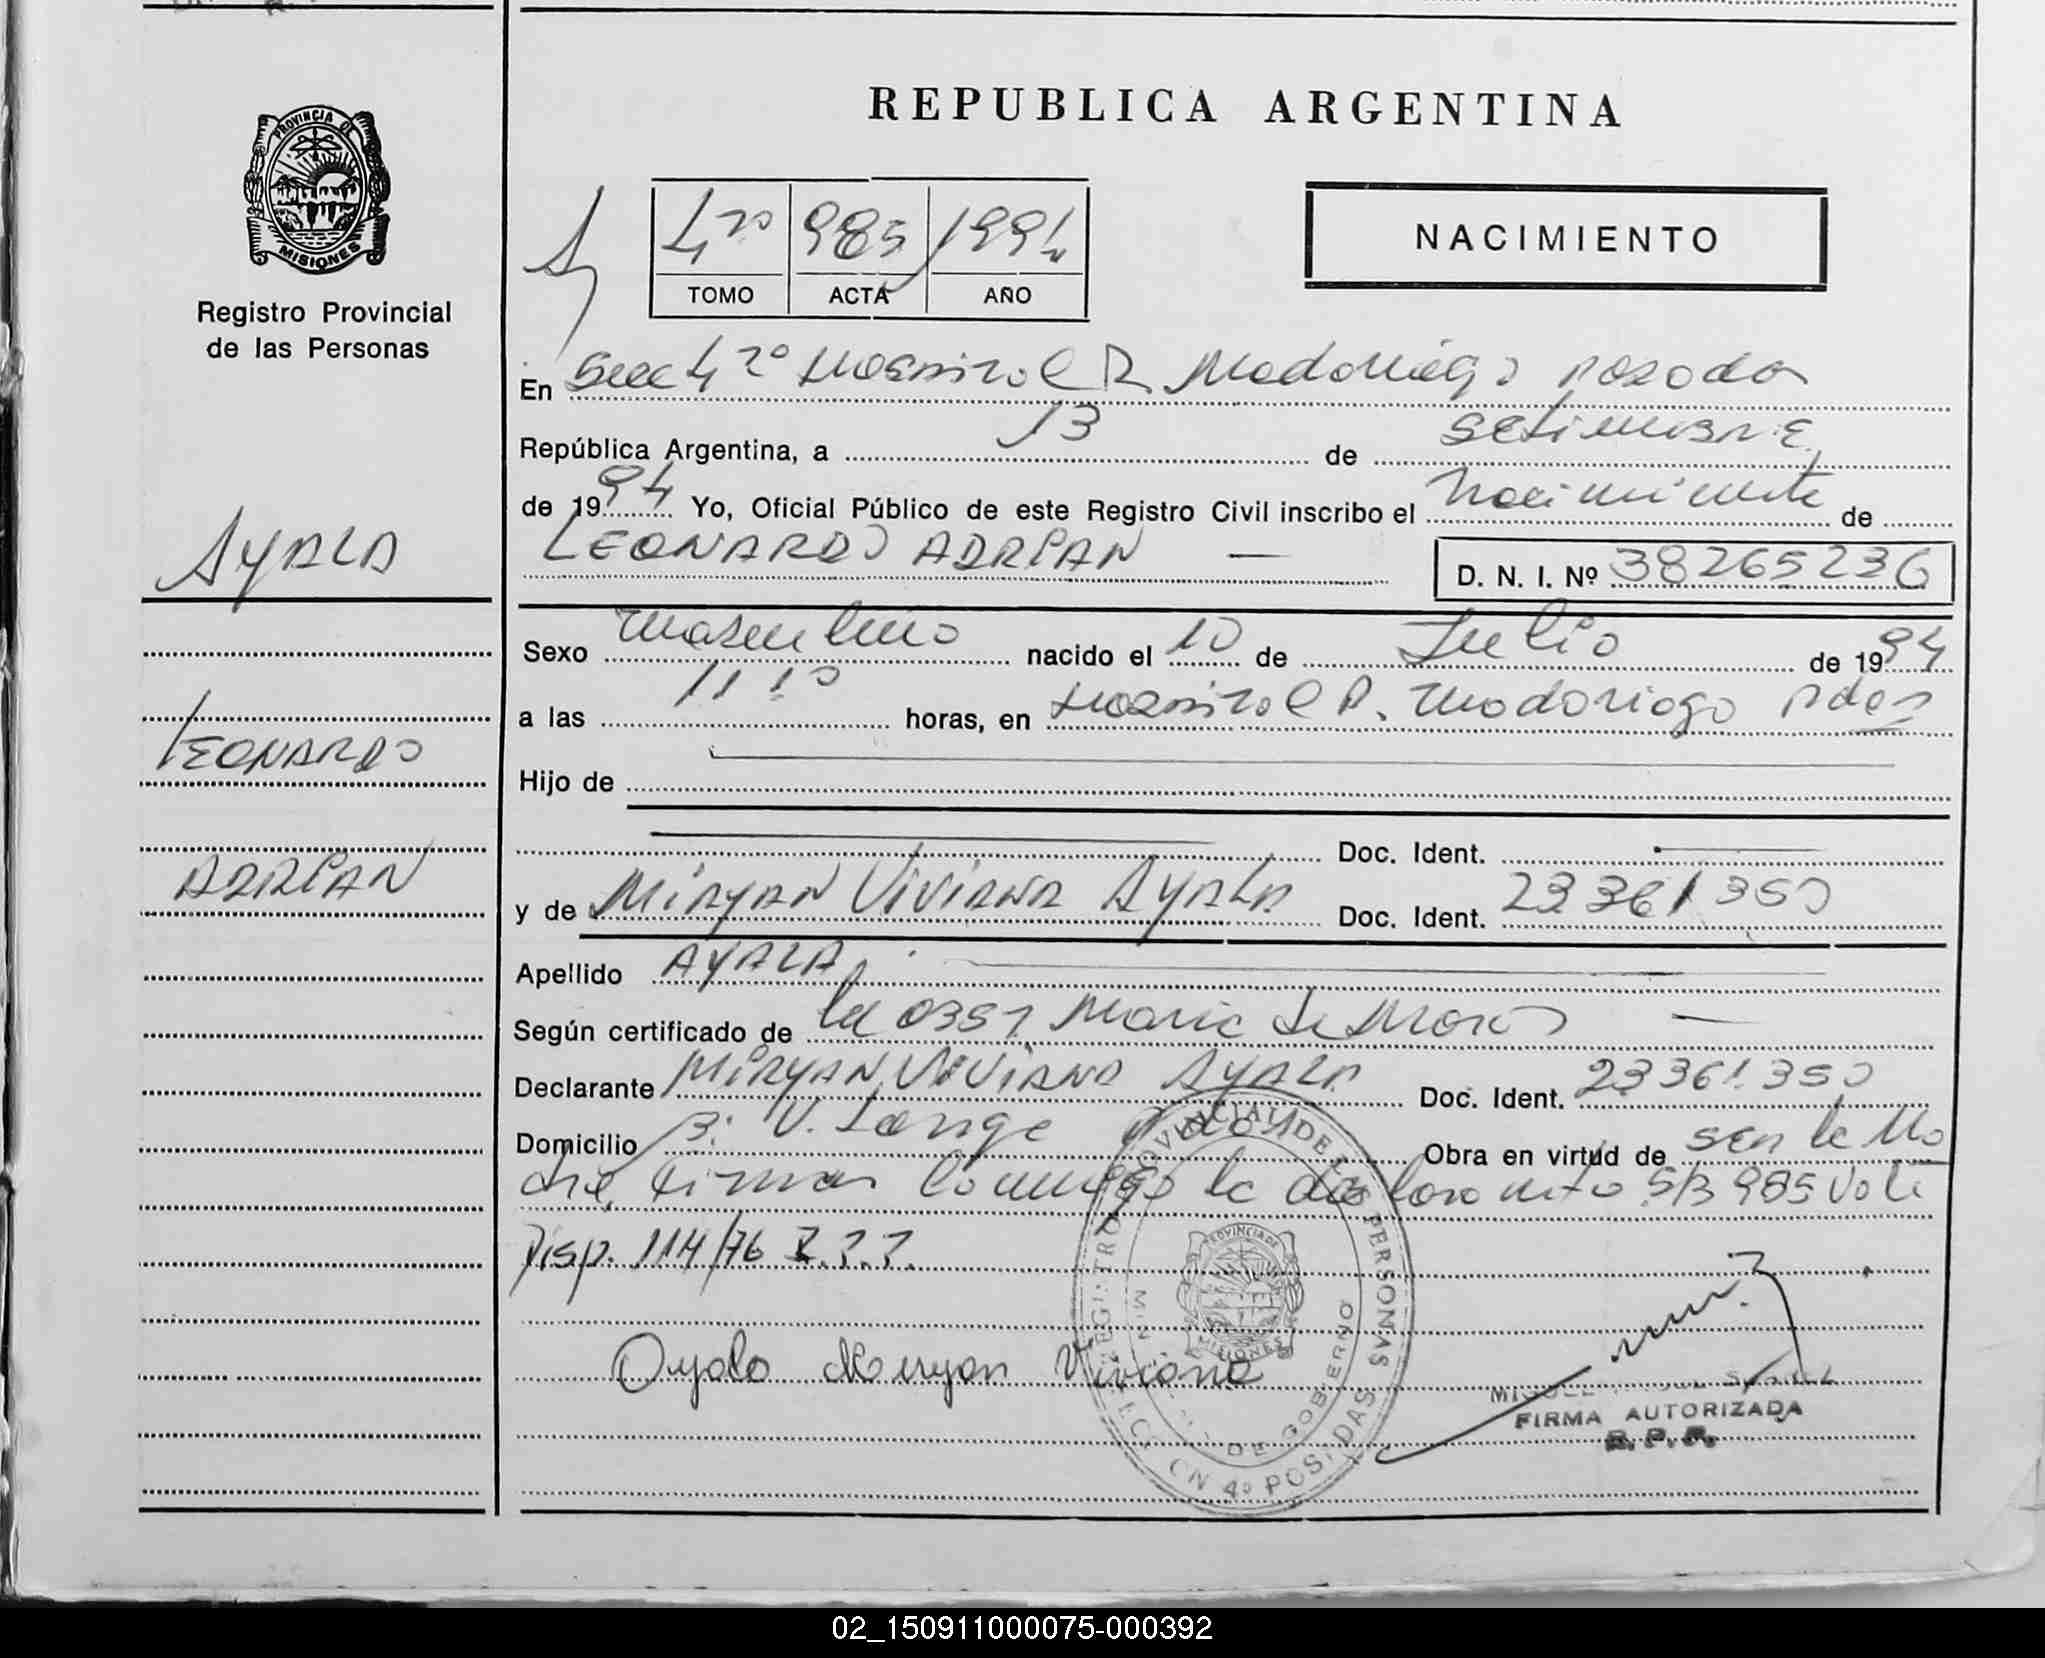 REPUBLICA ARGENTINA
PROVINCIA DE
MISIONES
Registro Provincial
de las Personas
4to 985 1994
TOMO ACTA AÑO
NACIMIENTO
En Secc 4ta Hospital R Madariaga Posadas
República Argentina, a 13 de Setiembre
de 1994 Yo, Oficial Público de este Registro Civil inscribo el Nacimiento de
LEONARDO ADRIAN — D. N. I. Nº 38265236
AYALA
LEONARDO
ADRIAN
Sexo Masculino nacido el 10 de Julio de 1994
a las 11 10 horas, en Hospital R. Madariaga Pdas
Hijo de
Doc. Ident.
y de MIRYAN VIVIANA AYALA Doc. Ident. 23361350
Apellido AYALA
Según certificado de la Obst Maria de —
Declarante MIRYAN VIVIANA AYALA Doc. Ident. 23361350
Domicilio B: V. Lange Pdas Obra en virtud de ser la Ma
dre, Firma Conmigo la S/B 985 Vale
Disp. 114/76 R.P.P.
Ayala Miryan Viviana
REGISTRO PROVINCIAL DE LAS PERSONAS
PROVINCIA DE
MISIONES
DE GOBIERNO
SECCION 4º POSADAS
FIRMA AUTORIZADA
R. P. P.
02_150911000075-000392